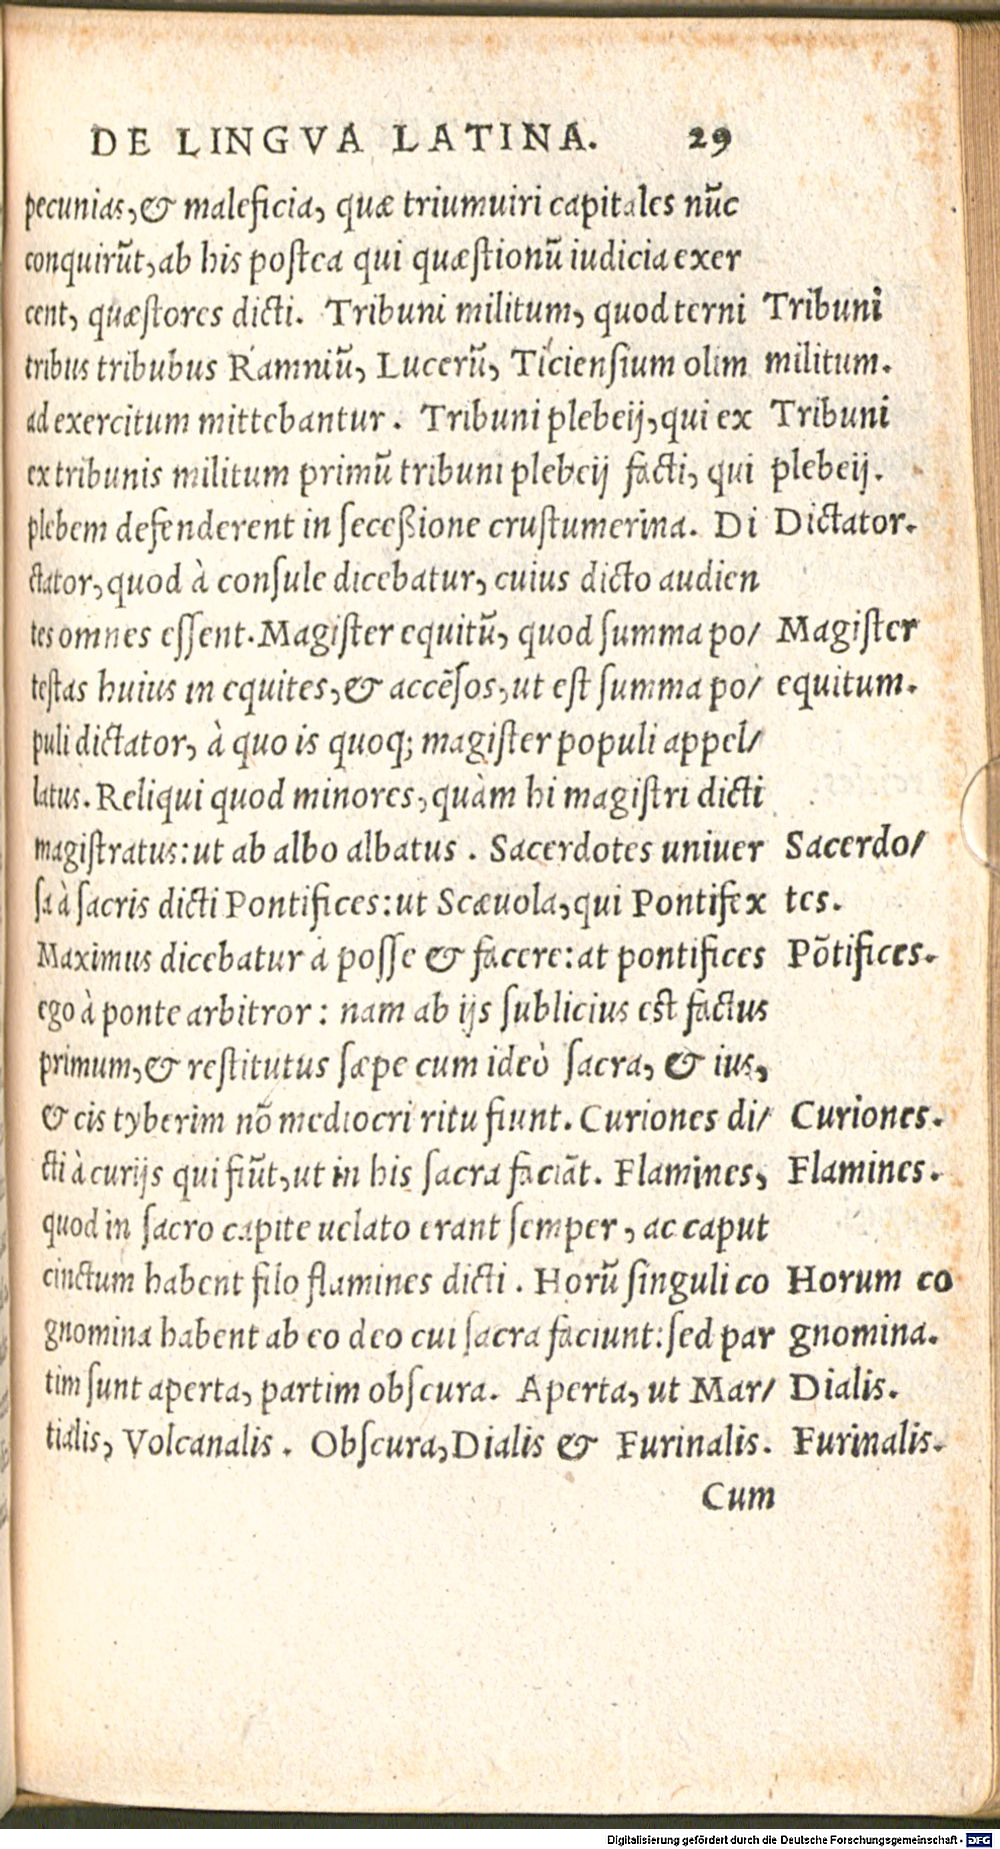 DE LINGVA LATINA. 29
pecunias, & maleficia, quæ triumuiri capitales nūc
conquirūt, ab his postea qui quæstionū iudicia exer
cent, quæstores dicti. Tribuni militum, quod terni Tribuni
tribus tribubus Ramniū, Lucerū, Ticiensium olim militum.
ad exercitum mittebantur. Tribuni plebeij, qui ex Tribuni
ex tribunis militum primū tribuni plebeij facti, qui plebeij.
plebem defenderent in seceßione crustumerina. Di Dictator.
ctator, quod à consule dicebatur, cuius dicto audien
tes omnes essent. Magister equitū, quod summa po/ Magister
testas huius in equites, & accēsos, ut est summa po/ equitum.
puli dictator, à quo is quoq; magister populi appel/
latus. Reliqui quod minores, quàm hi magistri dicti
magistratus: ut ab albo albatus. Sacerdotes uniuer Sacerdo/
sa à sacris dicti Pontifices: ut Scæuola, qui Pontifex tes.
Maximus dicebatur à posse & facere: at pontifices Pōtifices.
ego à ponte arbitror: nam ab ijs sublicius est factus
primum, & restitutus sæpe cum ideò sacra, & ius,
& cis tyberim nō mediocri ritu fiunt. Curiones di/ Curiones.
cti à curijs qui fiūt, ut in his sacra faciāt. Flamines, Flamines.
quod in sacro capite uelato erant semper, ac caput
cinctum habent filo flamines dicti. Horū singuli co Horum co
gnomina habent ab eo deo cui sacra faciunt: sed par gnomina.
tim sunt aperta, partim obscura. Aperta, ut Mar/ Dialis.
tialis, Volcanalis. Obscura, Dialis & Furinalis. Furinalis.
Cum
Digitalisierung gefördert durch die Deutsche Forschungsgemeinschaft - DFG